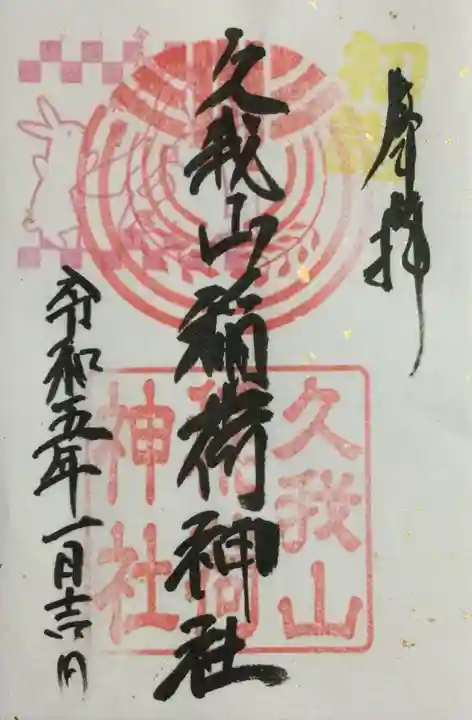 奉拝
久我山稲荷神社
令和五年一月吉日
初詣
久我山
稲荷
神社